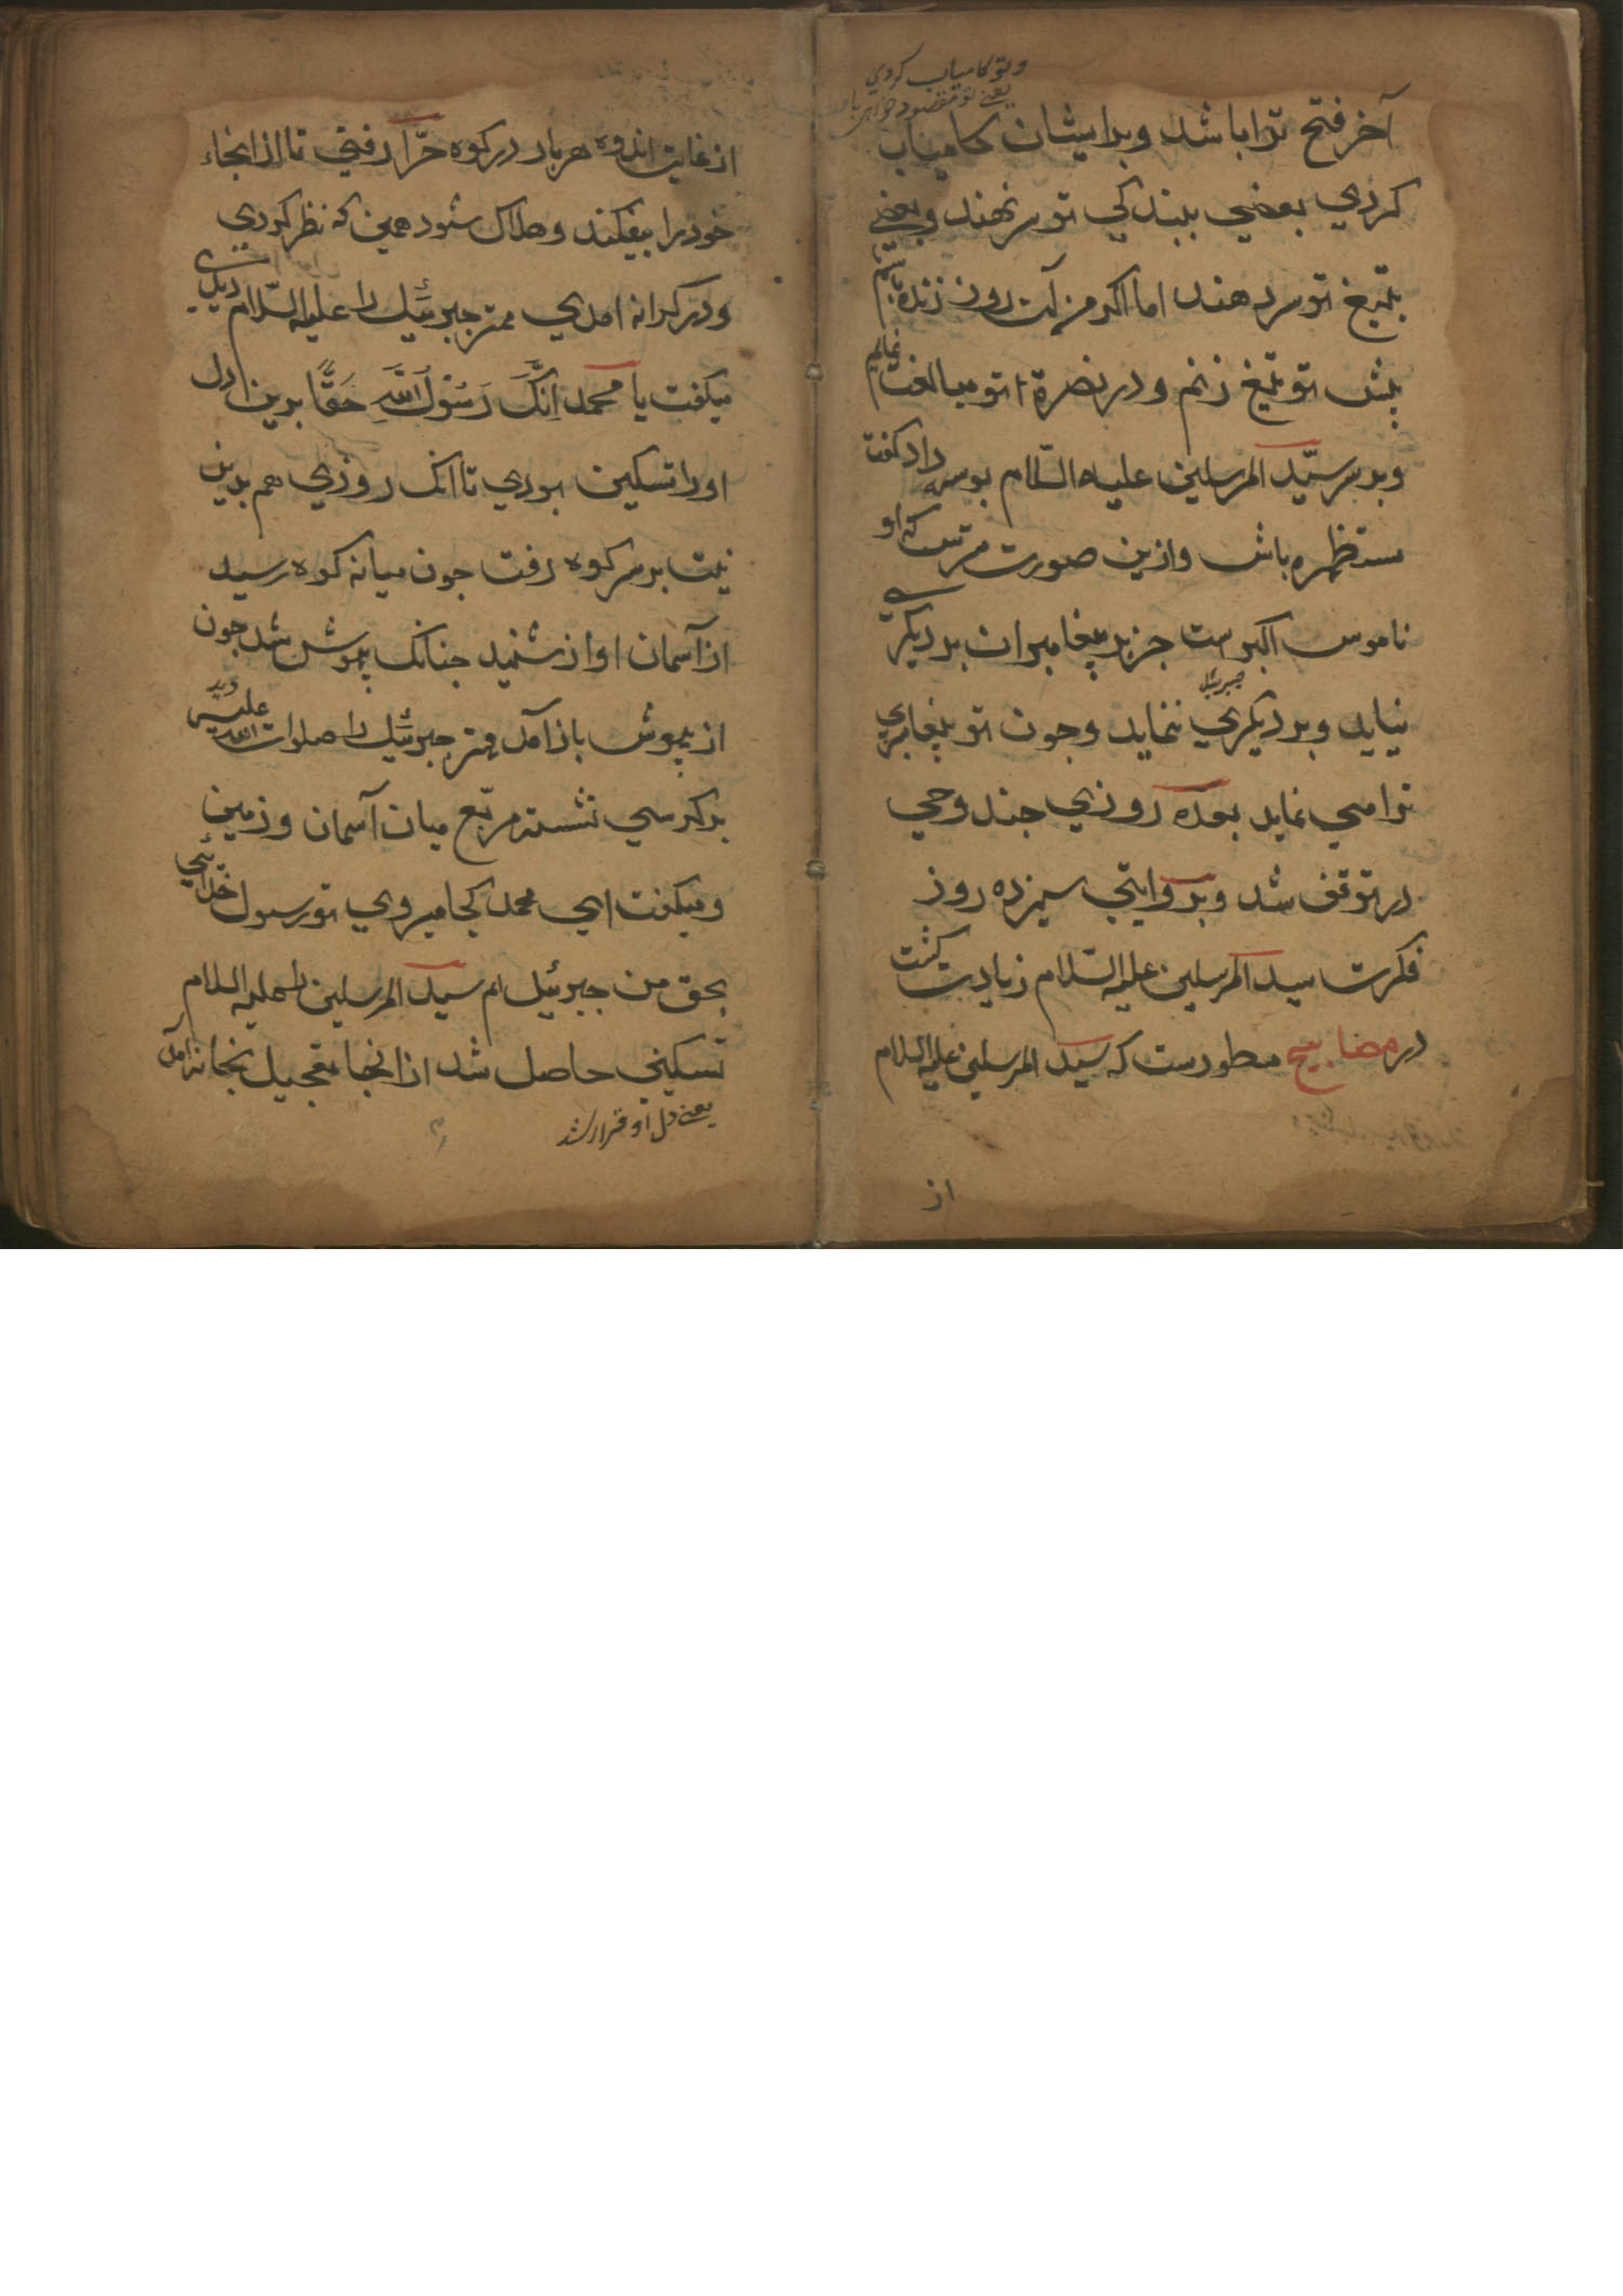 وتو کامیاب کردي
یعنے تو مقصود خواهي
آخر فتح ترا باشد وبر ایشان کامیاب
کردي بعضي ببندکي تو سر نهند وبعضے
بتیغ تو سر دهند اما اکر من آن روز زنده باشم
پیش تو تیغ زنم ودر نصرة تو مبالغت نمایم
وبر سر سیّد المرسلین علیه السّلام بوسه داد کفت
مستظهر باش وازین صورت مترس که او
ناموس اکبرست جز بر پیغامبران بر دیکرے
نیاید وبر دیکري ننماید وجون تو پیغامبري
جبرئیل
ترا می نماید بعده روزي جند وحي
در توقف شد وبروایتي سیزده روز
فکرت سید المرسلین علیه السّلام زیادت کشت
در مصابیح مسطورست که سیّد المرسلین علیه السلام
از
از غایت اندوه هر بار در کوه حرّا رفتي تا از انجاء
خود را بیفکند وهلاک شود همین که نظر کردي
ودر کرانه امدي مهتر جبرئیل را علیه السّلام دیدي
میکفت یا محمد اِنَّکَ رَسُوْلُ اللّٰهِ حَقًّا بدین دل
او را تسکین بودي تا انک روزي هم بدین
نیت بر سر کوه رفت جون میانه کوه رسید
از آسمان اواز شنید جنانک بیهوش شد جون
از بیهوش باز آمد مهتر جبرئیل را صلوات اللّه علیه دید
بر کرسي نشسته مربّع میان آسمان وزمین
ومیکفت اي محمد کجا میروي تو رسول خدائي
بحق من جبرئیل ام سید المرسلین را علیه السلام
تسکیني حاصل شد از انجا بتعجیل بخانه آمد
یعنے دل او قرار شد